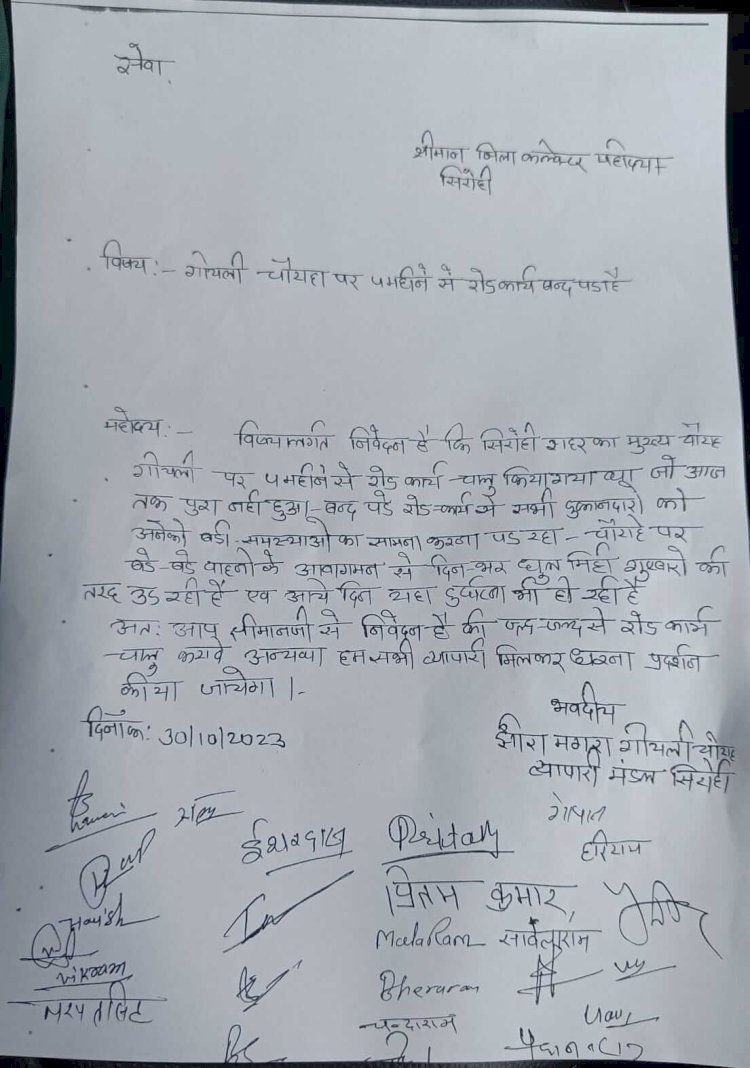 सेवा,
श्रीमान जिला कलेक्टर महोदय
सिरोही
विषय:- गोयली चौराहा पर 5 महीने से रोड कार्य बन्द पडा है
महोदय:- विषयान्तर्गत निवेदन है कि सिरोही शहर का मुख्य चौराह
गोयली पर 5 महीने से रोड कार्य चालु किया गया था जो आज
तक पुरा नहीं हुआ- बन्द पडे रोड-कार्य से सभी दुकानदारो को
अनेको बडी-समस्याओ का सामना करना पड रहा - चौराहे पर
बडे-बडे वाहनो के आवागमन से दिन-भर धुल मिट्टी गुब्बारो की
तरह उड रही हैं एव आये दिन यहा दुर्घटना भी हो रही है
अत: आप श्रीमानजी से निवेदन है की जल्द-जल्द से रोड कार्य
चालु करावे अन्यथा हम सभी व्यापारी मिलकर धरना प्रदर्शन
कीया जायेगा ।-
भवदीय
दिनांक: 30/10/2023
मगरा गोयली चौराह
व्यापारी मंडल सिरोही
गोपाल
ईशरदान
हरिराम
प्रितम कुमार
Harish
MalaRam सांवलाराम
Vikram
Bheraram
चन्दाराम